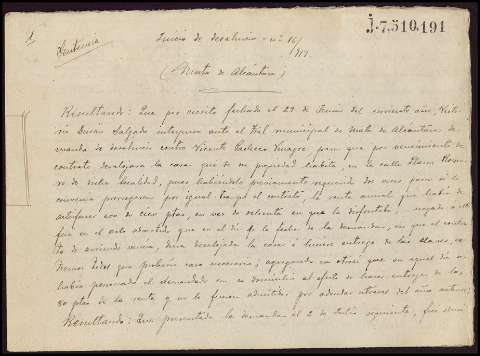 1
J-7,510,191
Sentencia
Juicio de desahucio - nº 16/
917
(Mata de Alcántara)
Resultando: Que por escrito fechado el 29 de Junio del corriente año, 
Durán Salgado interpuso ante el Tral municipal de Mata de Alcántara de
manda de desahucio contra Vicente Pacheco Vinagre para que por vencimiento de
contrato desalojara la casa que de su propiedad habita, en la calle
de dicha localidad, pues habiéndole previamente requerido dos veces para si le
convenia proseguir por igual tiempo el contrato, la renta anual que habia de
satisfacer era de cien ptas, en vez de ochenta en que la disfrutaba, negado a
fué en el acto acordado que en el día 9, la fecha de la demanda, en que el contra
to de arriendo vencia, debia desalojar la casa é hiciese entrega de las llaves,
todas que probaria caso necesario; agregando en otrosi que en aquel dia se
habia personado el demandado en su domicilio al efecto de hacer entrega de las
80 ptas de la renta y no le fueron admitidas por adeudar atrasos del año anterior;
Resultando: Que presentada la demanda el 2 de Julio siguiente, fué